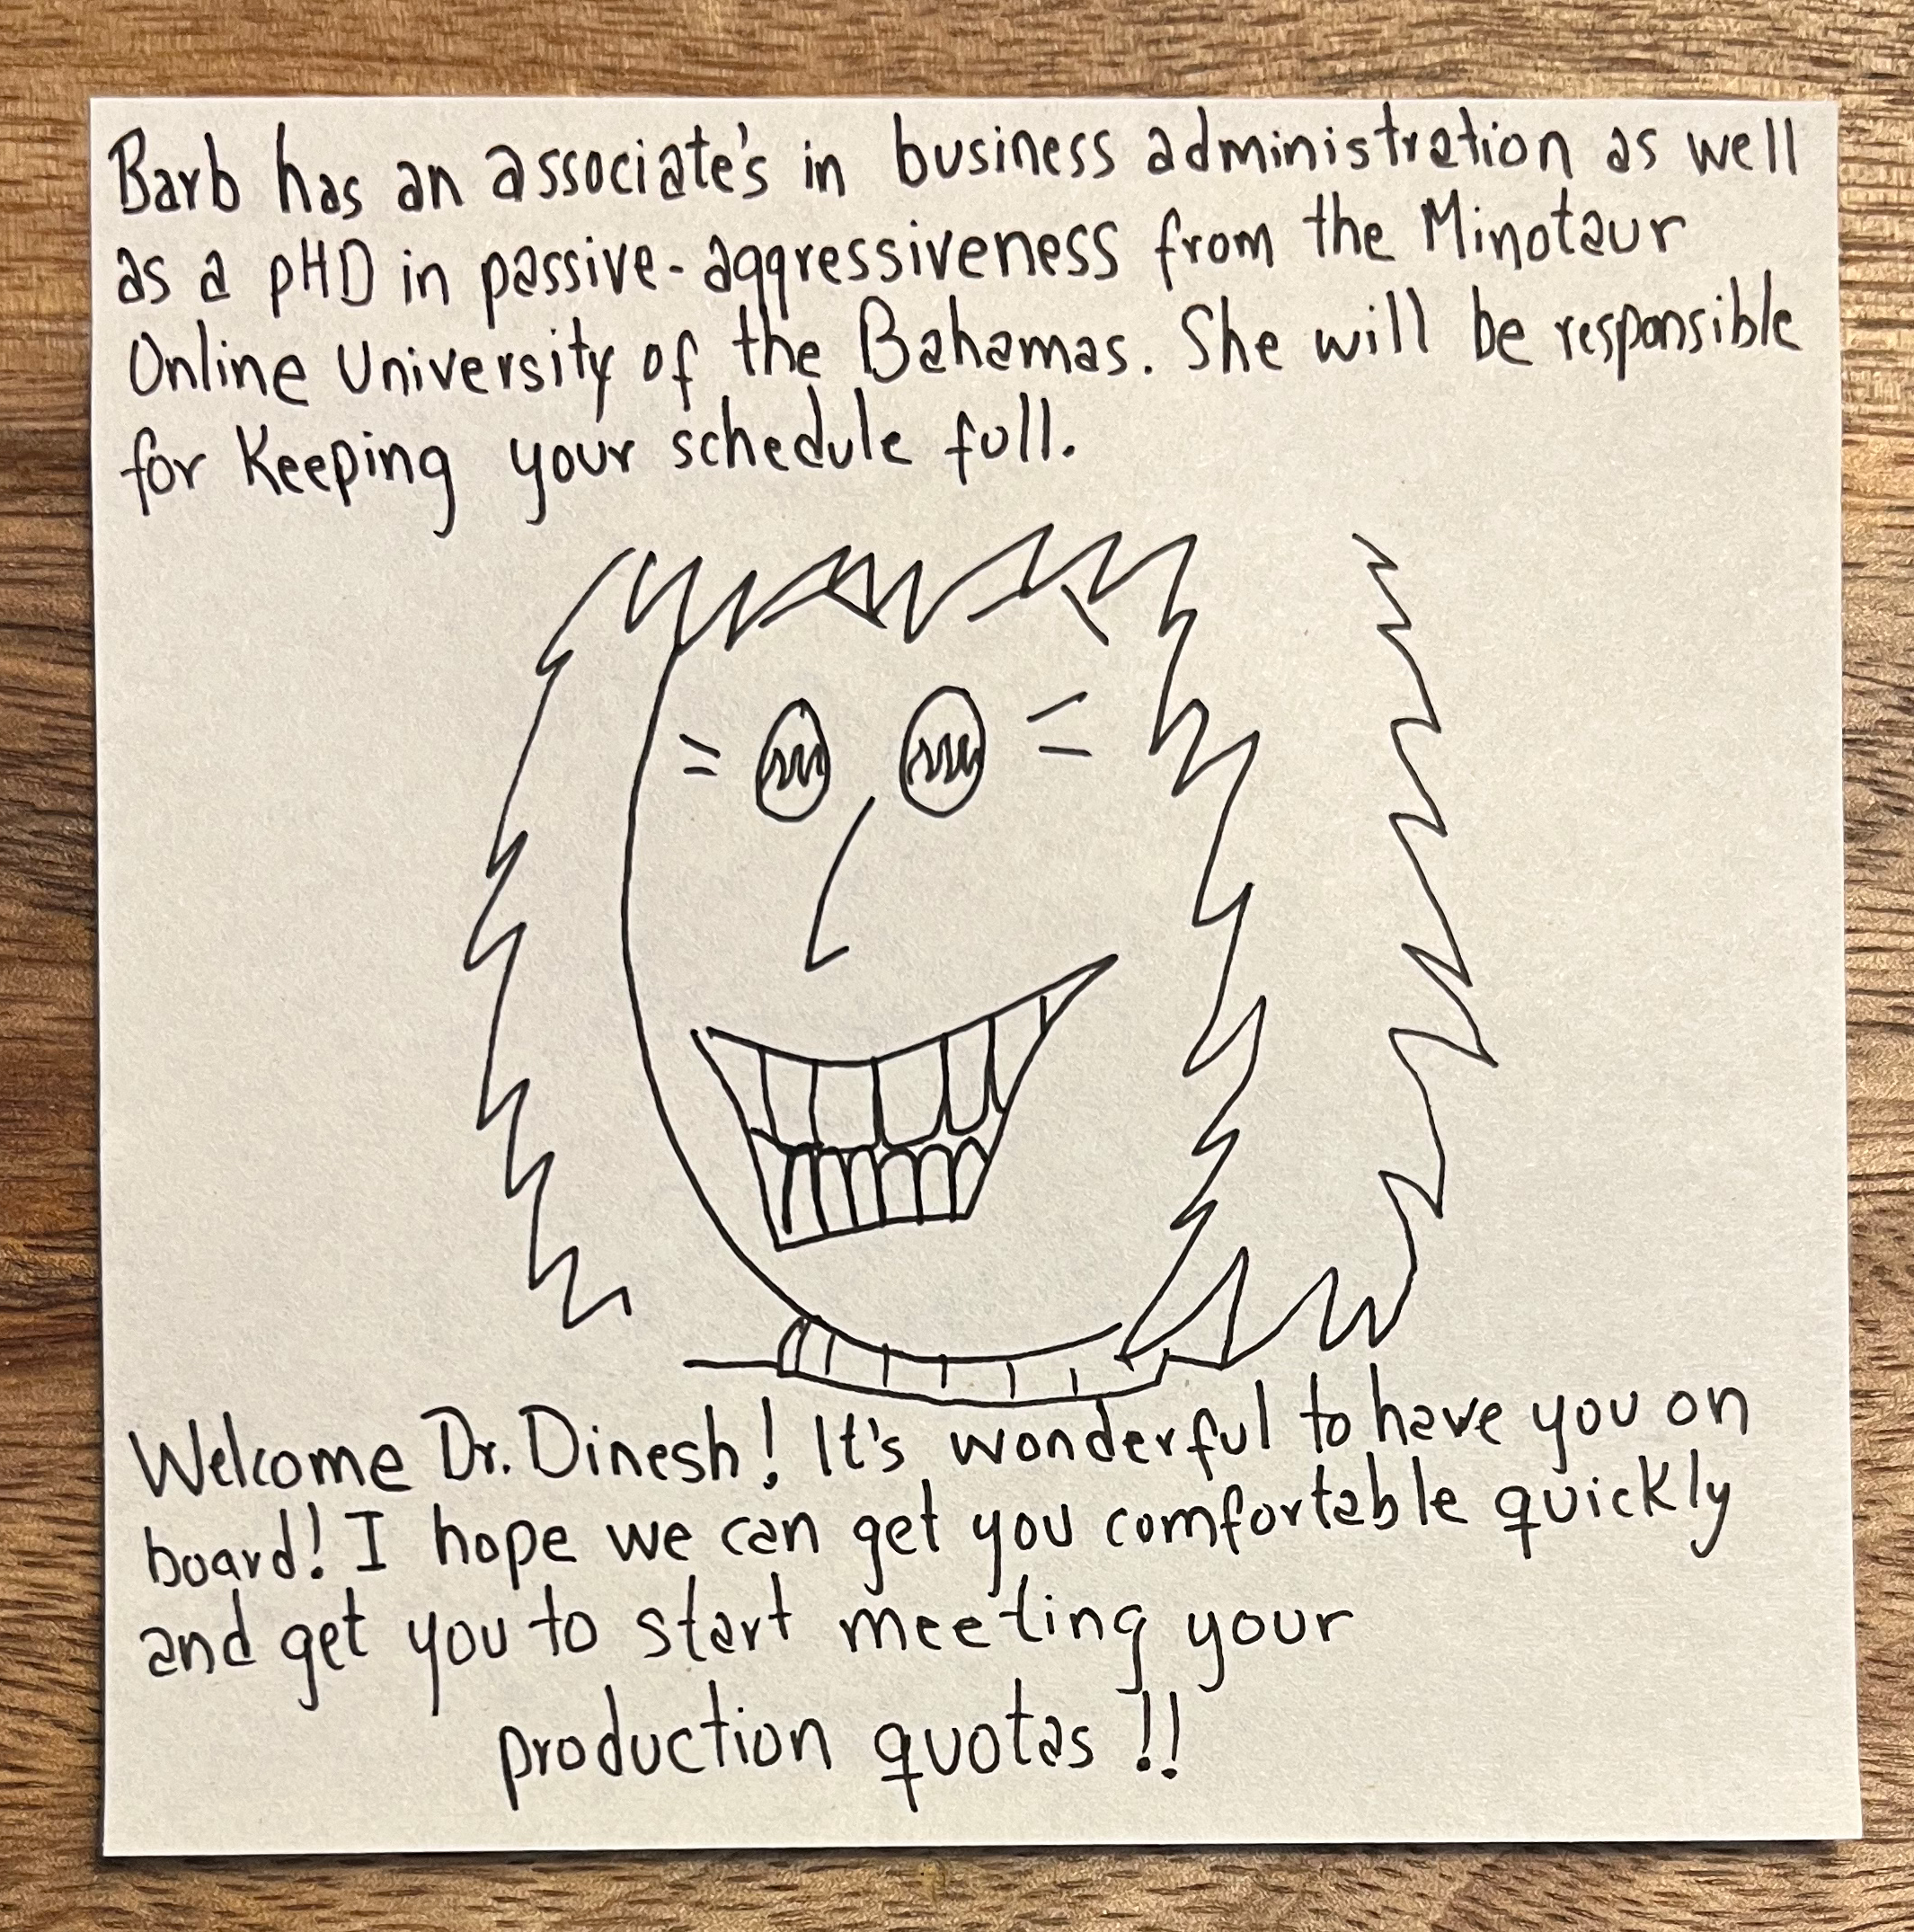 Barb has an associate's in business administration as well
as a pHD in passive-aggressiveness from the Minotaur
Online University of the Bahamas. She will be responsible
for Keeping your schedule full.
Welcome Dr. Dinesh! It's wonderful to have you on
board! I hope we can get you comfortable quickly
and get you to start meeting your
production quotas!!